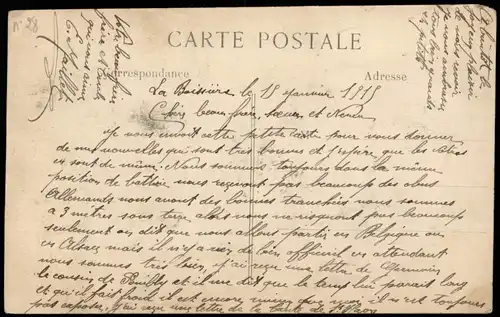 n° 28
CARTE POSTALE
Correspondance
Adresse
La Boissière le 18 janvier 1915
Chers beau-frère, sœur et Neveu
Je vous envoit cette petite carte pour vous donner
de mes nouvelles qui sont très bonnes et j'espère que les vôtres
en sont de même. Nous sommes toujours dans la même
position de batterie nous recevont pas beaucoup des obus
Allemands nous avont des bonnes tranchées nous sommes
a 3 mètres sous terre alors nous ne risquont pas beaucoup
seulement on dit que nous allons partir en Belgique ou
en Alsace mais il n'y a rien de bien officiel en attendant
nous sommes très bien, j'ai reçu une lettre de Germain
le cousin de et il me dit que le temp lui parait long
et qu'il fait froid il est encore mieux que moi il n'est toujours
pas exposer, j'ai reçu une lettre de la tante de
votre beau frère
frère et oncle
qui vous aime
E.
A bientôt le
plaisir
de vous revoir
je vous embrasse
tous bien